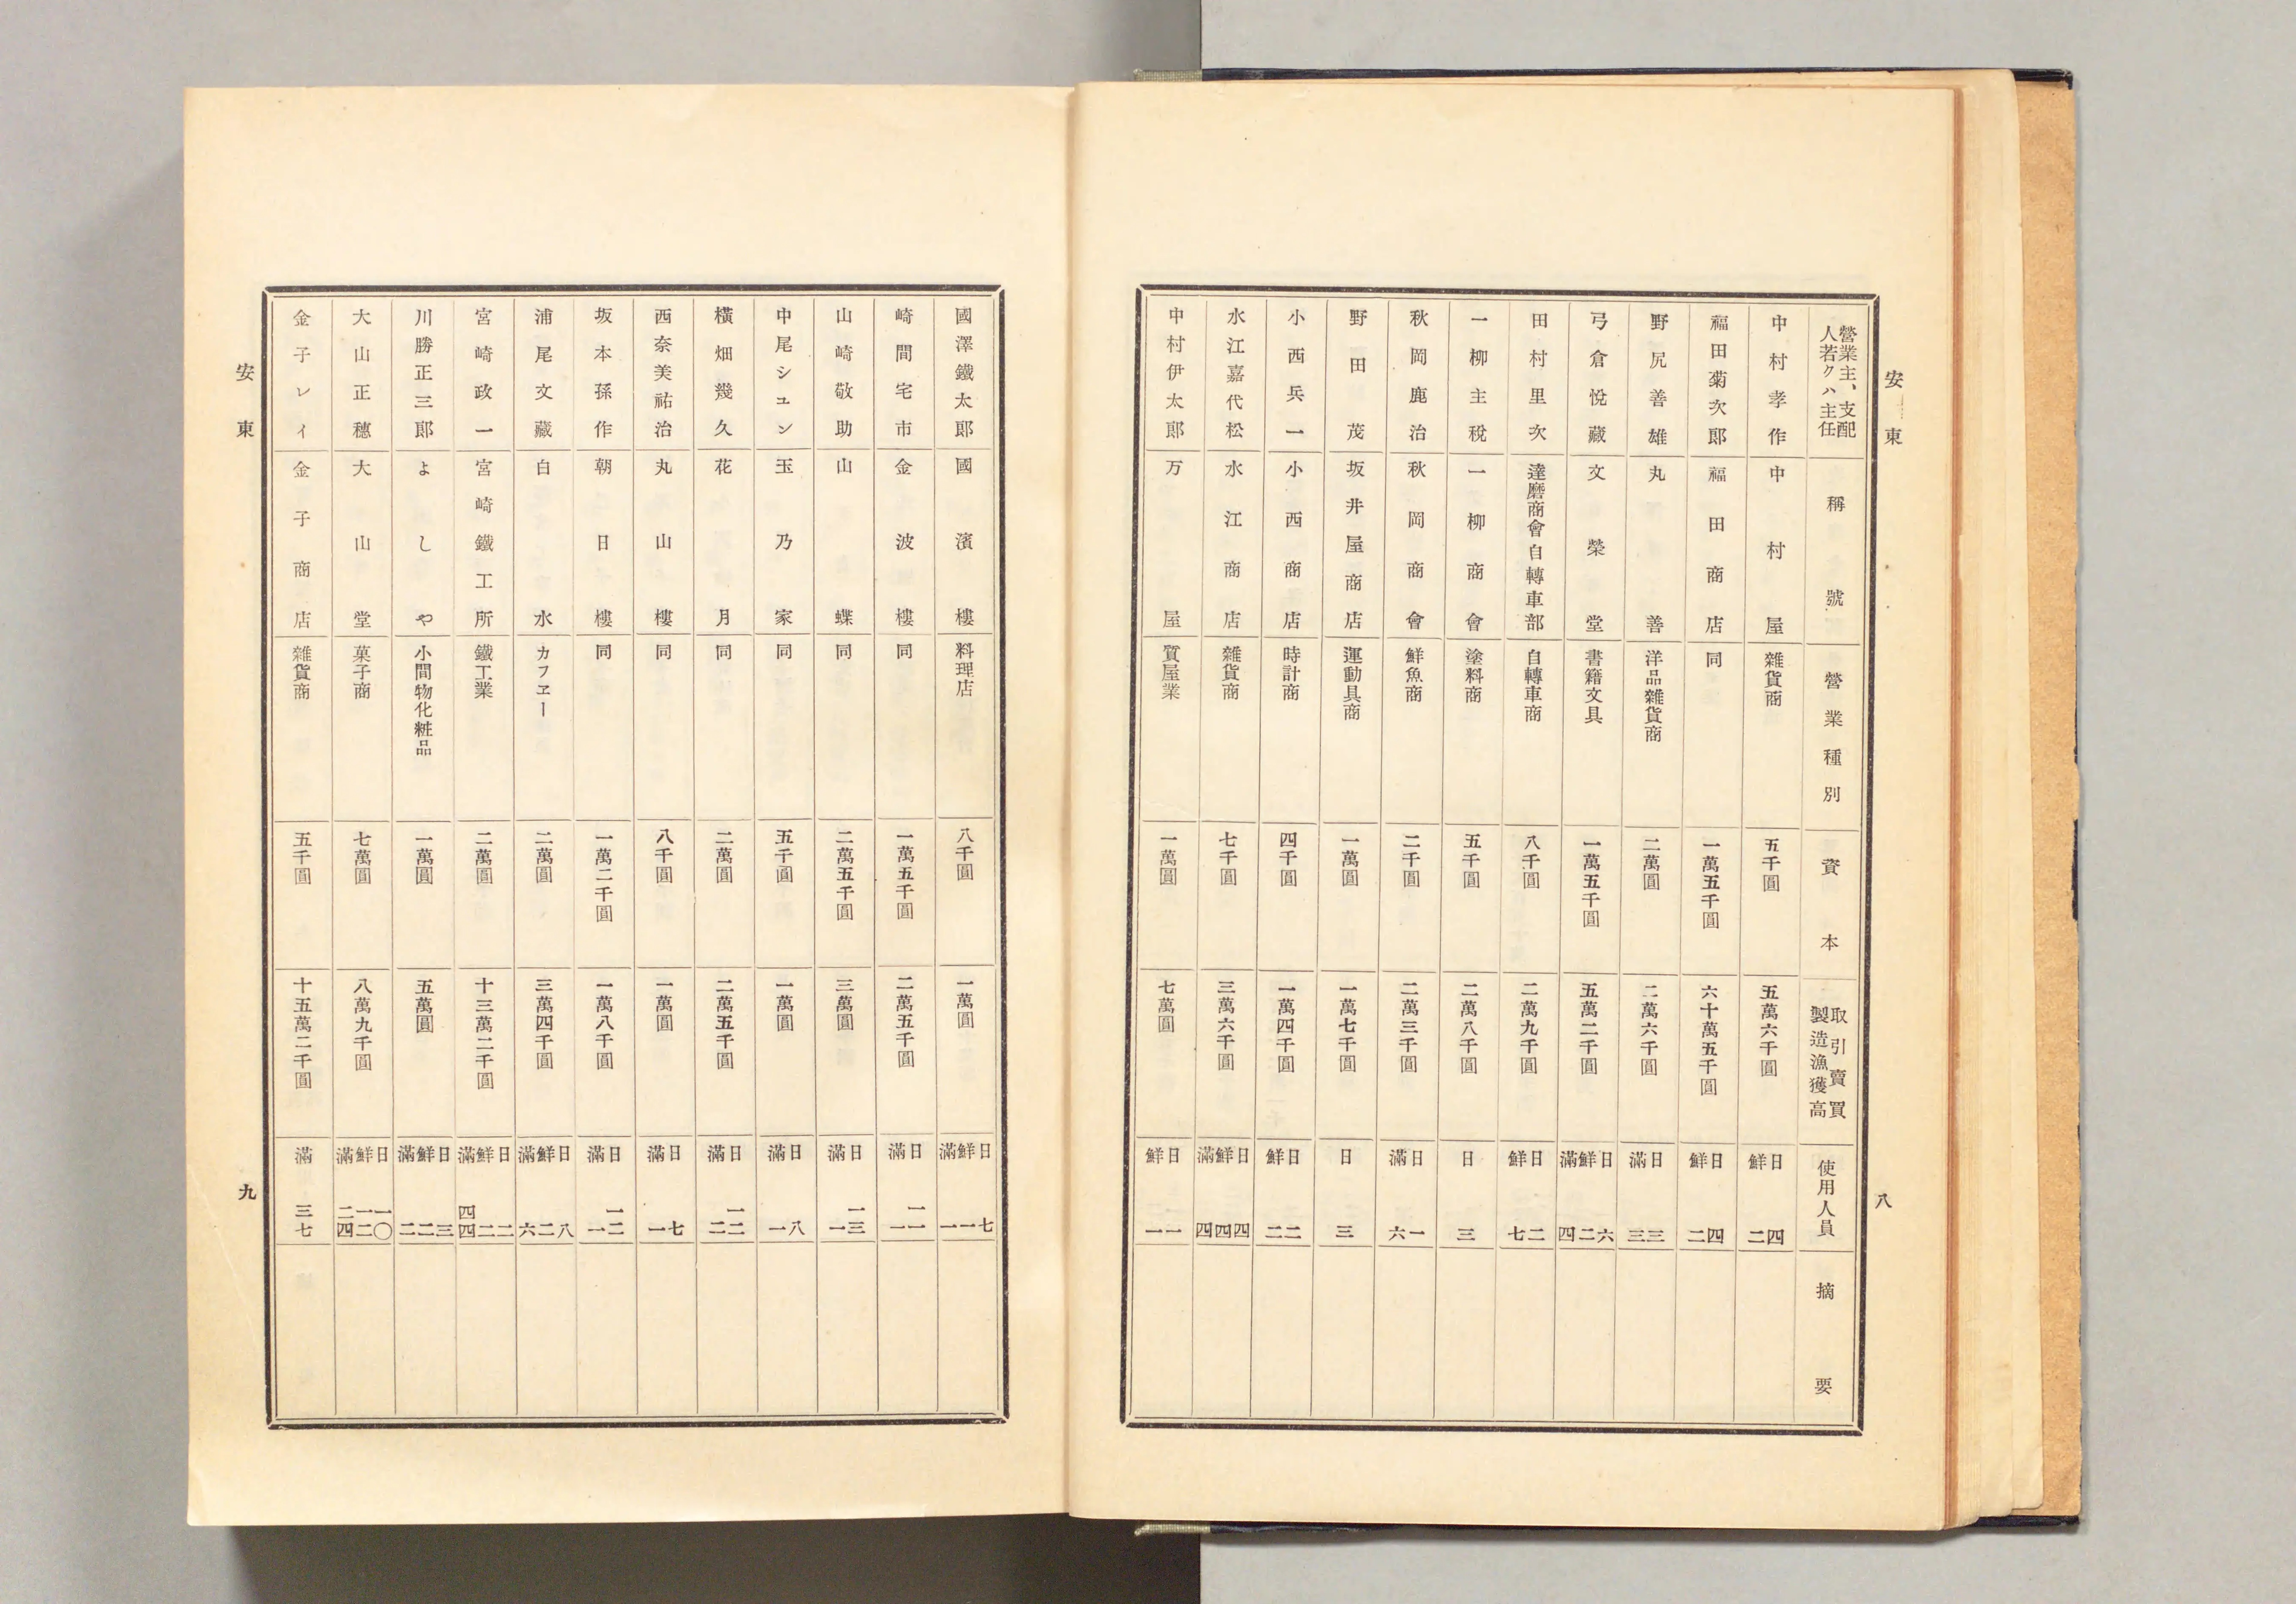 安東
八
營業主、支配人若クハ主任 稱號 營業種別 資本 取引賣買製造漁獲高 使用人員 摘要
中村孝作 中村屋 雜貨商 五千圓 五萬六千圓 日四 鮮二
福田菊次郎 福田商店 同 一萬五千圓 六十萬五千圓 日四 鮮二
野尻善雄 丸善 洋品雜貨商 二萬圓 二萬六千圓 日三 滿三
弓倉悅藏 文榮堂 書籍文具 一萬五千圓 五萬二千圓 日六 鮮二 滿四
田村里次 達磨商會自轉車部 自轉車商 八千圓 二萬九千圓 日二 鮮七
一柳主稅 一柳商會 塗料商 五千圓 二萬八千圓 日三
秋岡鹿治 秋岡商會 鮮魚商 二千圓 二萬三千圓 日一 滿六
野田茂 坂井屋商店 運動具商 一萬圓 一萬七千圓 日三
小西兵一 小西商店 時計商 四千圓 一萬四千圓 日二 鮮二
水江嘉代松 水江商店 雜貨商 七千圓 三萬六千圓 日四 鮮四 滿四
中村伊太郎 万屋 質屋業 一萬圓 七萬圓 日一 鮮一
國澤鐵太郎 國濱樓 料理店 八千圓 一萬圓 日七 鮮一 滿一
崎間宅市 金波樓 同 一萬五千圓 二萬五千圓 日一一 滿一
山崎敬助 山蝶 同 二萬五千圓 三萬圓 日一三 滿一
中尾シユン 玉乃家 同 五千圓 一萬圓 日八 滿一
橫畑幾久 花月 同 二萬圓 二萬五千圓 日一二 滿二
西奈美祐治 丸山樓 同 八千圓 一萬圓 日七 滿一
坂本孫作 朝日樓 同 一萬二千圓 一萬八千圓 日一二 滿一
浦尾文藏 白水 カフヱー 二萬圓 三萬四千圓 日八 鮮二 滿六
宮崎政一 宮崎鐵工所 鐵工業 二萬圓 十三萬二千圓 日二 鮮二 滿四四
川勝正三郎 よしや 小間物化粧品 一萬圓 五萬圓 日三 鮮二 滿二
大山正穗 大山堂 菓子商 七萬圓 八萬九千圓 日一〇 鮮一二 滿二四
金子レイ 金子商店 雜貨商 五千圓 十五萬二千圓 滿三七
安東
九